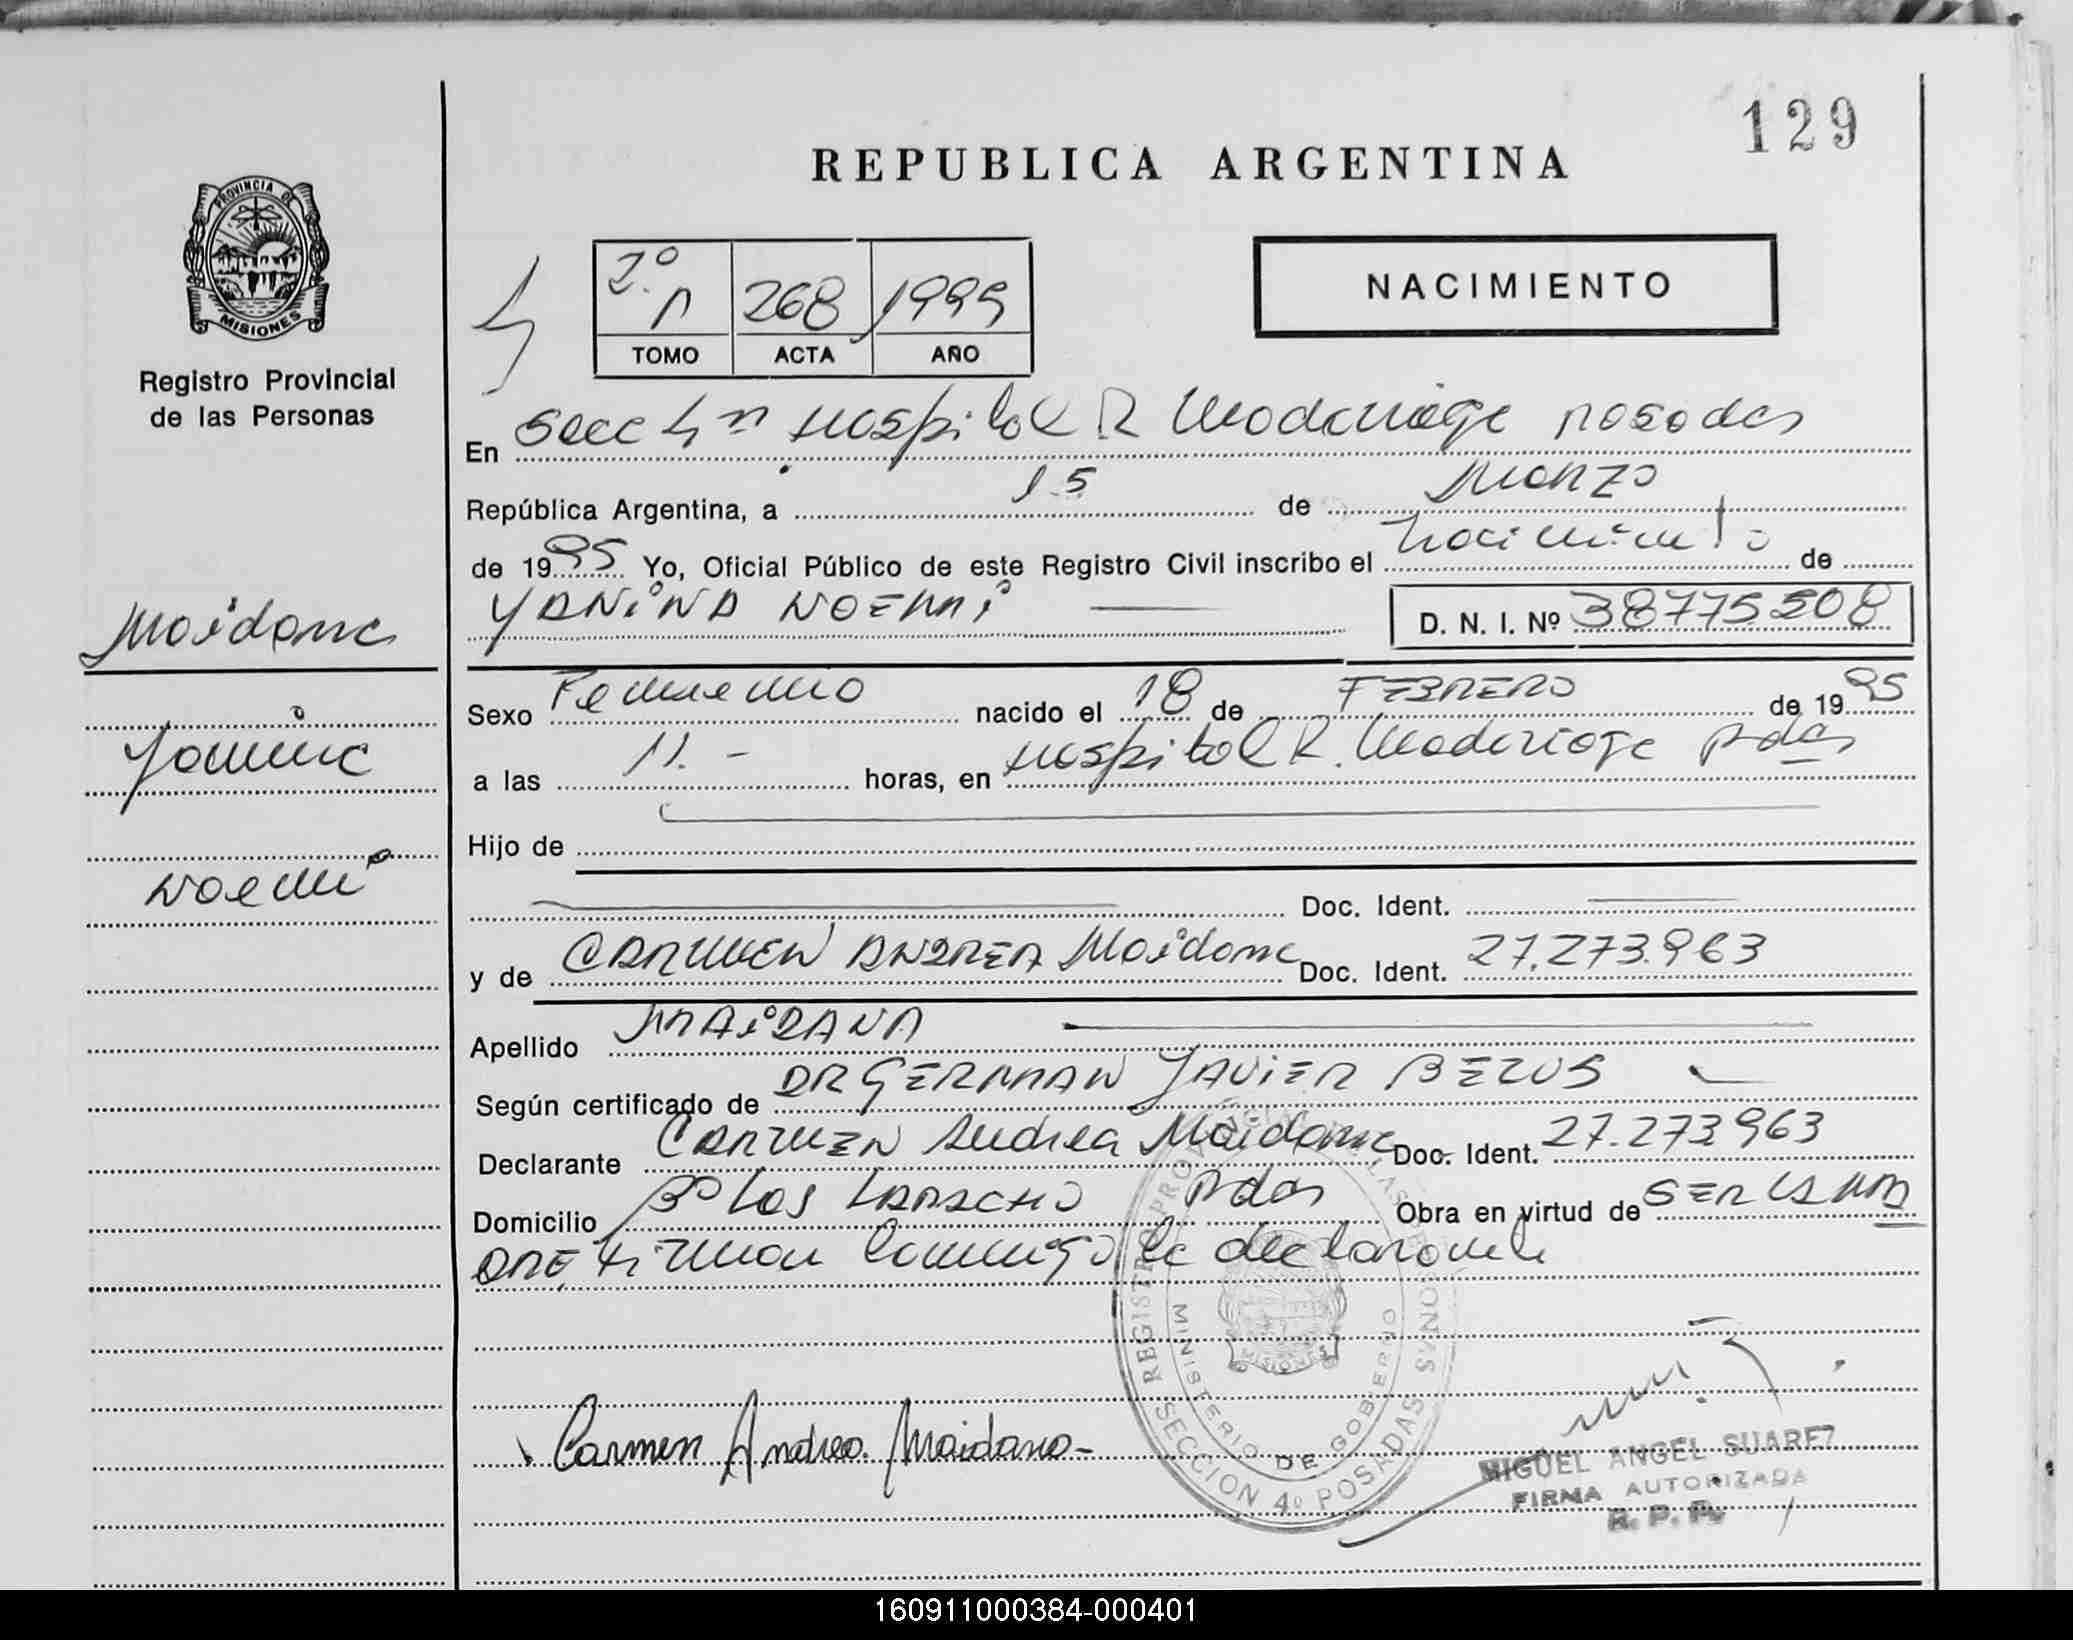 129
REPUBLICA ARGENTINA
PROVINCIA DE
MISIONES
Registro Provincial
de las Personas
2º 268 1995
TOMO ACTA AÑO
NACIMIENTO
En Secc 4ª Hospital R Madariaga Posadas
República Argentina, a 15 de Marzo
de 1995 Yo, Oficial Público de este Registro Civil inscribo el nacimiento de
YANINA NOEMI D. N. I. Nº 38775.508
Maidana
Yanina
Noemi
Sexo Femenino nacido el 18 de FEBRERO de 1995
a las 11.- horas, en Hospital R. Madariaga Pdas
Hijo de
Doc. Ident.
y de CARMEN ANDREA Maidana Doc. Ident. 27.273.963
Apellido MAIDANA
Según certificado de DR GERMAN JAVIER BEZUS
Declarante CARMEN Andrea Maidana Doc. Ident. 27.273963
Domicilio Bº Los Pdas Obra en virtud de SER LA MA
DRE, Firman conmigo la declarante
Carmen Andrea Maidana-
REGISTRO PROVINCIAL DE LAS PERSONAS
MINISTERIO DE GOBIERNO
MISIONES
SECCION 4º POSADAS
MIGUEL ANGEL SUAREZ
FIRMA AUTORIZADA
R. P. P.
160911000384-000401